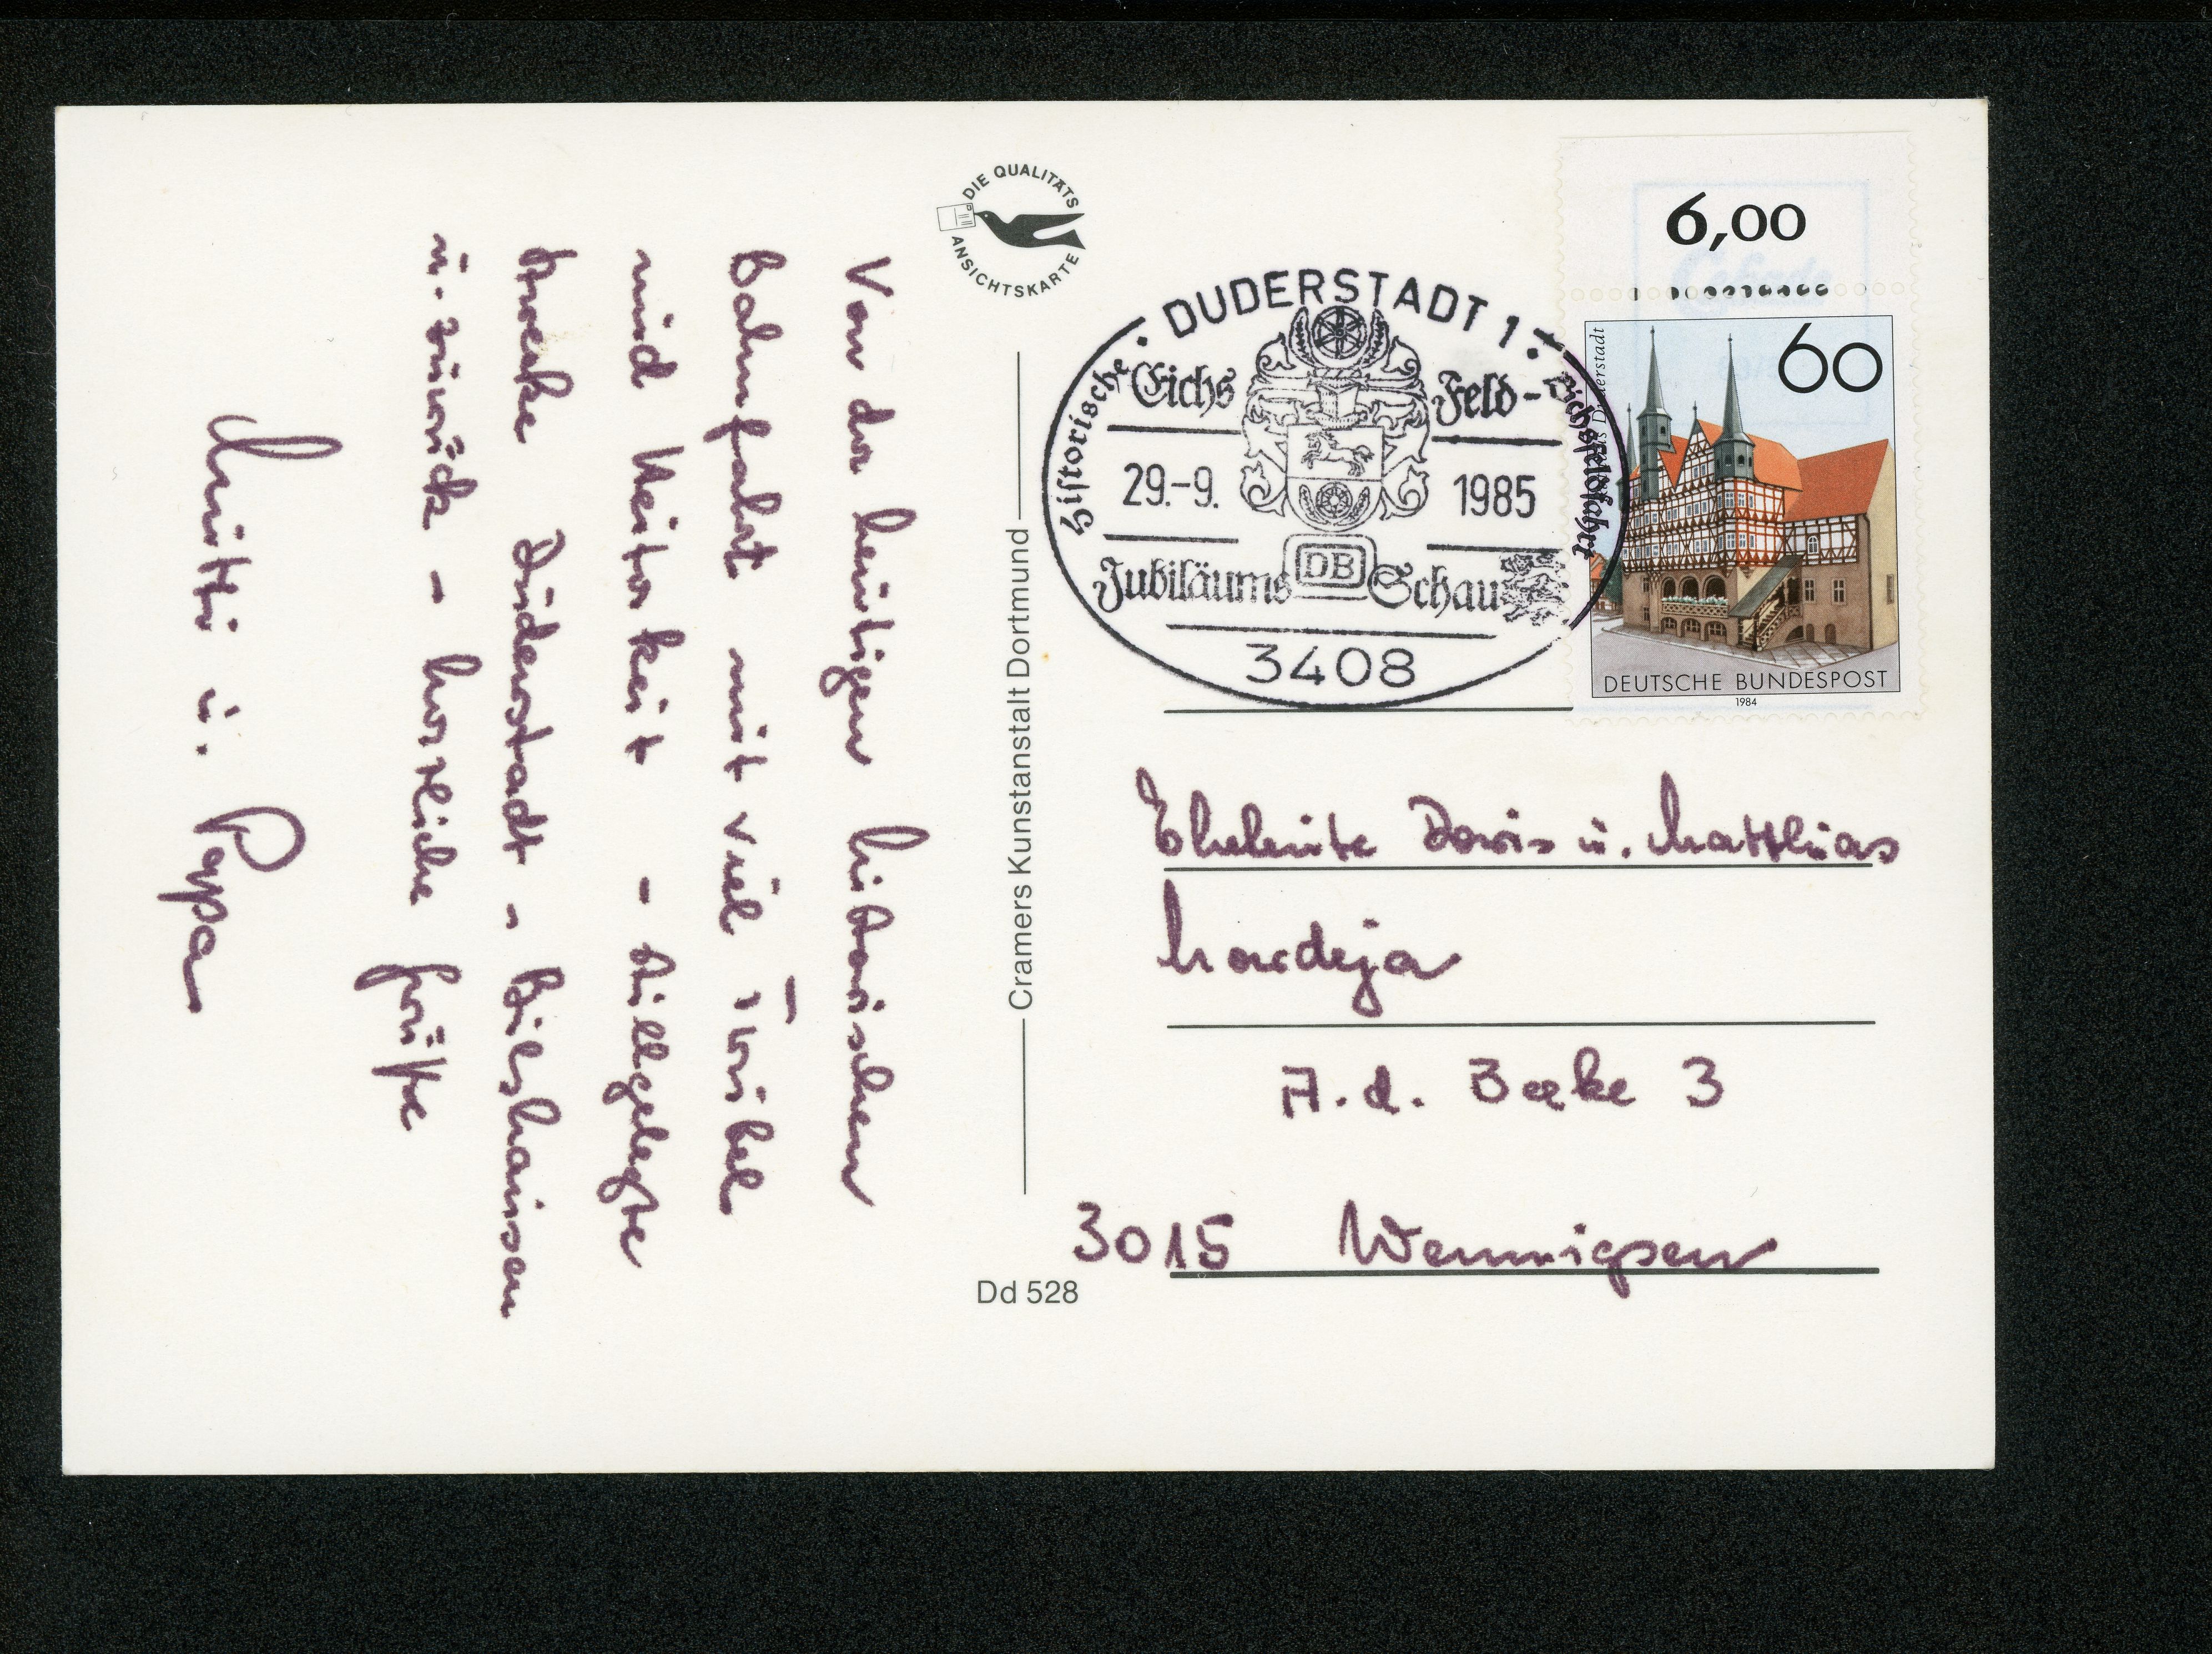 Von der heutigen historischen
Bahnfahrt mit viel Trubel
und Heiterkeit - stillgelegte
Strecke Duderstadt - Bilshausen
u. zurück - herzliche Grüße
Mutti u. Papa
DIE QUALITÄTS
ANSICHTSKARTE
Cramers Kunstanstalt Dortmund
Dd 528
6,00
60
Duderstadt
DEUTSCHE BUNDESPOST
1984
DUDERSTADT 1
Historische Eichsfeldfahrt
Eichs Feld-
29.-9. 1985
DB
Jubiläums Schau
3408
Eheleute Doris u. Matthias
A.d. Beeke 3
3015 Wennigsen